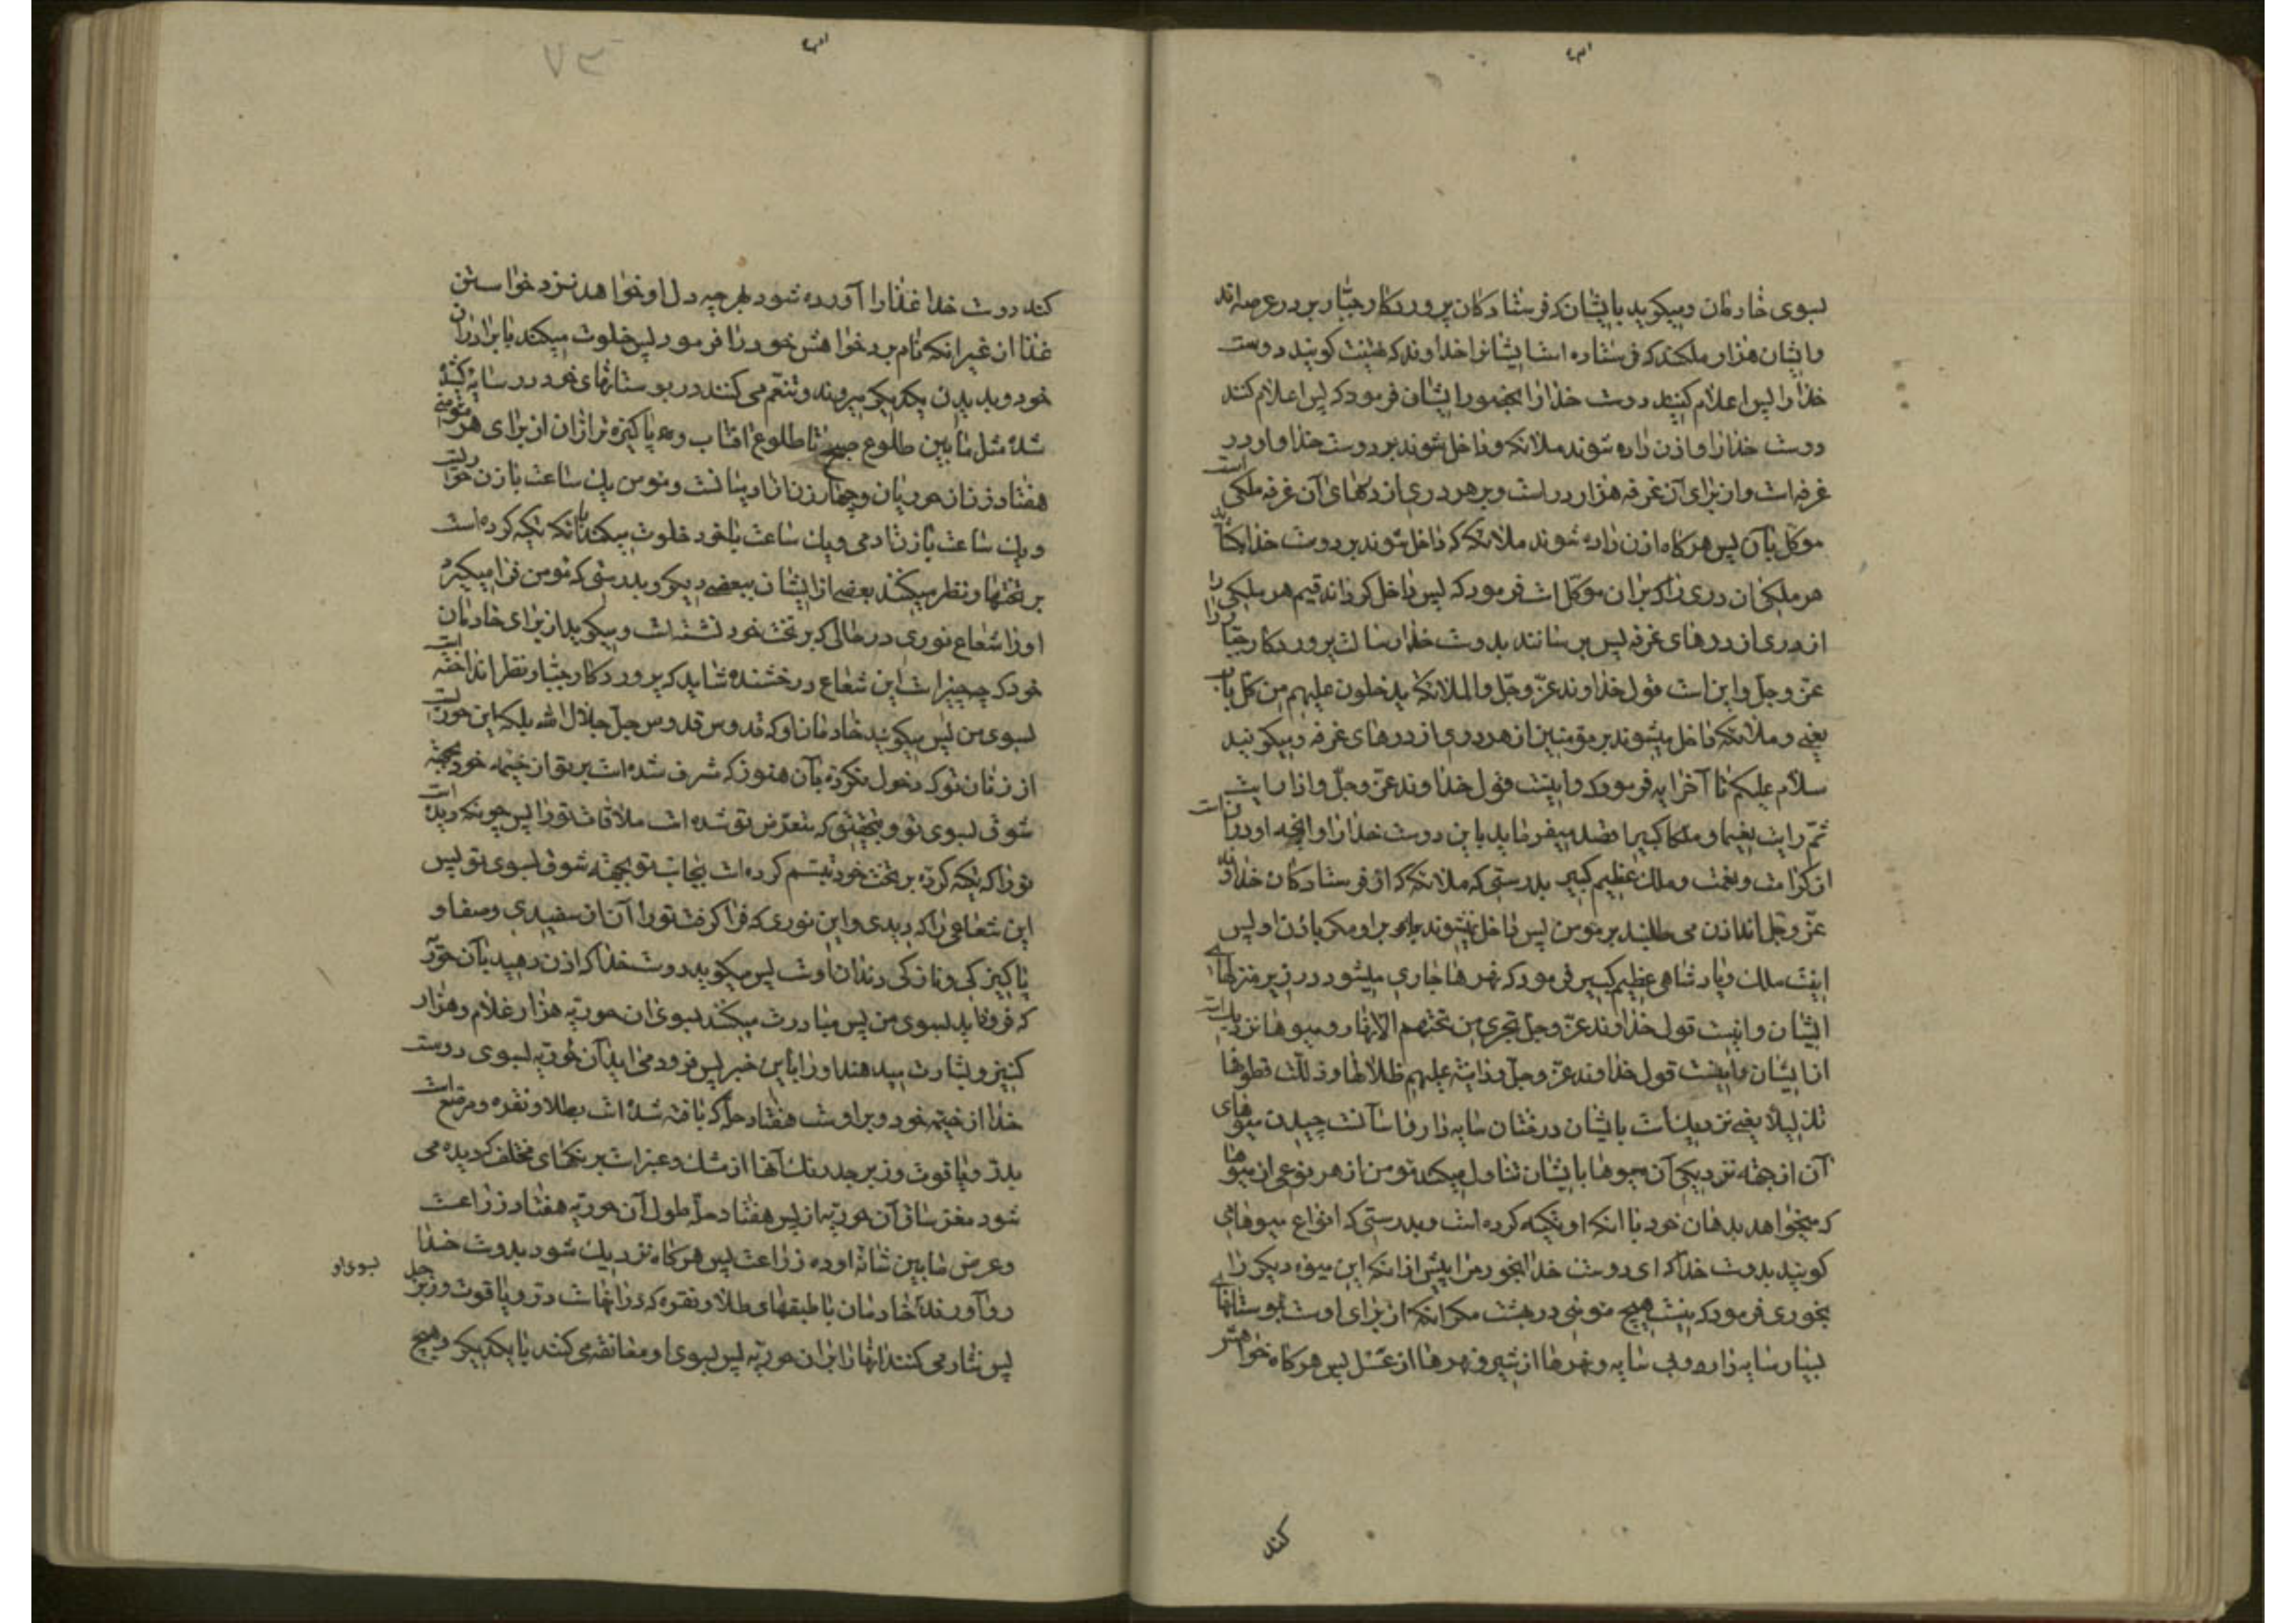 بسوی خادمان و میکوید بایشان که فرستادکان پروردکار جبار بر در عرصه اند
و ایشان هزار ملکند که فرستاده است ایشانرا خداوند که تهنیت کویند دوست
خدا را پس اعلام کنید دوست خدا را بحضور ایشان فرمود که پس اعلام کنند
دوست خدا را و اذن داده شوند ملائکه و داخل شوند بر دوست خدا و او در
غرفه است و از برای آن غرفه هزار در است و بر هر دری از درهای آن غرفه ملکی است
موکل بآن پس هر کاه اذن داده شوند ملائکه که داخل شوند بر دوست خدا بکشاید
هر ملکی ان دری را که بران موکل است فرمود که پس داخل کرداند قیم هر ملکی را
از دری از درهای غرفه پس برسانند بدوست خدا رسالت پروردکار جبار را
عز و جل و این است قول خداوند عز و جل و الملائکة یدخلون علیهم من کل باب
یعنی و ملائکه داخل میشوند بر مؤمنین از هر دری از درهای غرفه و میکویند
سلام علیکم تا آخر ایه فرمود که و اینست قول خداوند عز و جل و اذا رایت
ثم رایت نعیما و ملکا کبیرا قصد میفرماید باین دوست خدا را و انچه او در آنست
از کرامت و نعمت و ملک عظیم کبیر بدرستی که ملائکه که از فرستادکان خداوند
عز و جل اند اذن می طلبند بر مومن پس داخل نمیشوند بر او مکر باذن او پس
اینست ملک و پادشاهی عظیم کبیر فرمود که نهرها جاری میشود در زیر منزلهای
ایشان و اینست قول خداوند عز و جل تجری من تحتهم الانهار و میوها نزدیک است
از ایشان و اینست قول خداوند عز و جل و دانیة علیهم ظلالها و ذللت قطوفها
تذلیلا یعنی نزدیک است بایشان درختان سایه دار و اسانست چیدن میوهای
آن از جهة نزدیکی آن میوها بایشان تناول میکند مومن از هر نوعی از میوها
که میخواهد بدهان خود با انکه او تکیه کرده است و بدرستی که انواع میوهای
کویند بدوست خدا که ای دوست خدا بخور مرا پیش از انکه این میوه دیکر را
بخوری فرمود که نیست هیچ مومنی در بهشت مکر انکه از برای اوست بوستانهای
بسیار سایه دار و بی سایه و نهرها از شیر و نهرها از عسل پس هر کاه خواهش
کند
کند دوست خدا غذا را آورده شود بهر چه دل او خواهد نزد خواستن
غذا از غیر انکه نام برد خواهش خود را فرمود پس خلوت میکند با برادران
خود و بدیدن یکدیکر میروند و تنعم می کنند در بوستانهای خود در سایه کشیده
شده مثل ما بین طلوع صبح تا طلوع افتاب و پاکیزه تر از ان از برای هر مومنی
هفتاد زنان حوریان و چهار زن از ادمیانست و مومن یک ساعت با زن حوراست
و یک ساعت با زن ادمی و یک ساعت با خود خلوت میکند با انکه تکیه کرده است
بر تختها و نظر میکنند بعضی از ایشان ببعضی دیکر و بدرستی که مومن فرا میکیرد
او را شعاع نوری در حالی که بر تخت خود نشسته است و میکوید از برای خادمان
خود که چه چیز است این شعاع درخشنده شاید که پروردکار جبار نظر انداخته است
بسوی من پس میکویند خادمان او که قدوس قدوس جل جلال الله بلکه این حوریست
از زنان تو که دخول نکرده بآن هنوز که مشرف شده است بر تو از خیمه خود بجهة
شوق بسوی تو و بتحقیق که متعرض تو شده است ملاقات تو را پس چونکه دیده است
تو را که تکیه کرده بر تخت خود تبسم کرده است بجانب تو بجهة شوق بسوی تو پس
این شعاعی را که دیدی و این نوری که فرا کرفت تو را آن از سفیدی و صفا و
پاکیزکی و نازکی دندان اوست پس میکوید دوست خدا که اذن دهید بآن حوریه
که فرود اید بسوی من پس مبادرت میکنند بسوی ان حوریه هزار غلام و هزار
کنیز و بشارت میدهند او را باین خبر پس فرود می اید آن حوریه بسوی دوست
خدا از خیمه خود و بر اوست هفتاد حله که بافته شده است بطلا و نقره و مرصع است
بدر و یاقوت و زبرجد رنک آنها از مشک و عنبر است برنکهای مختلف که دیده می
شود مغز ساق آن حوریه از پس هفتاد حله طول آن حوریه هفتاد زراعست
و عرض ما بین شانه او ده زراعت پس هر کاه نزدیک شود بدوست خدا
رو آورند خادمان با طبقهای طلا و نقره که در انهاست در و یاقوت و زبرجد
بسوی او
پس نثار می کنند انها را بر ان حوریه پس بسوی او معانقه می کنند با یکدیکر و هیچ